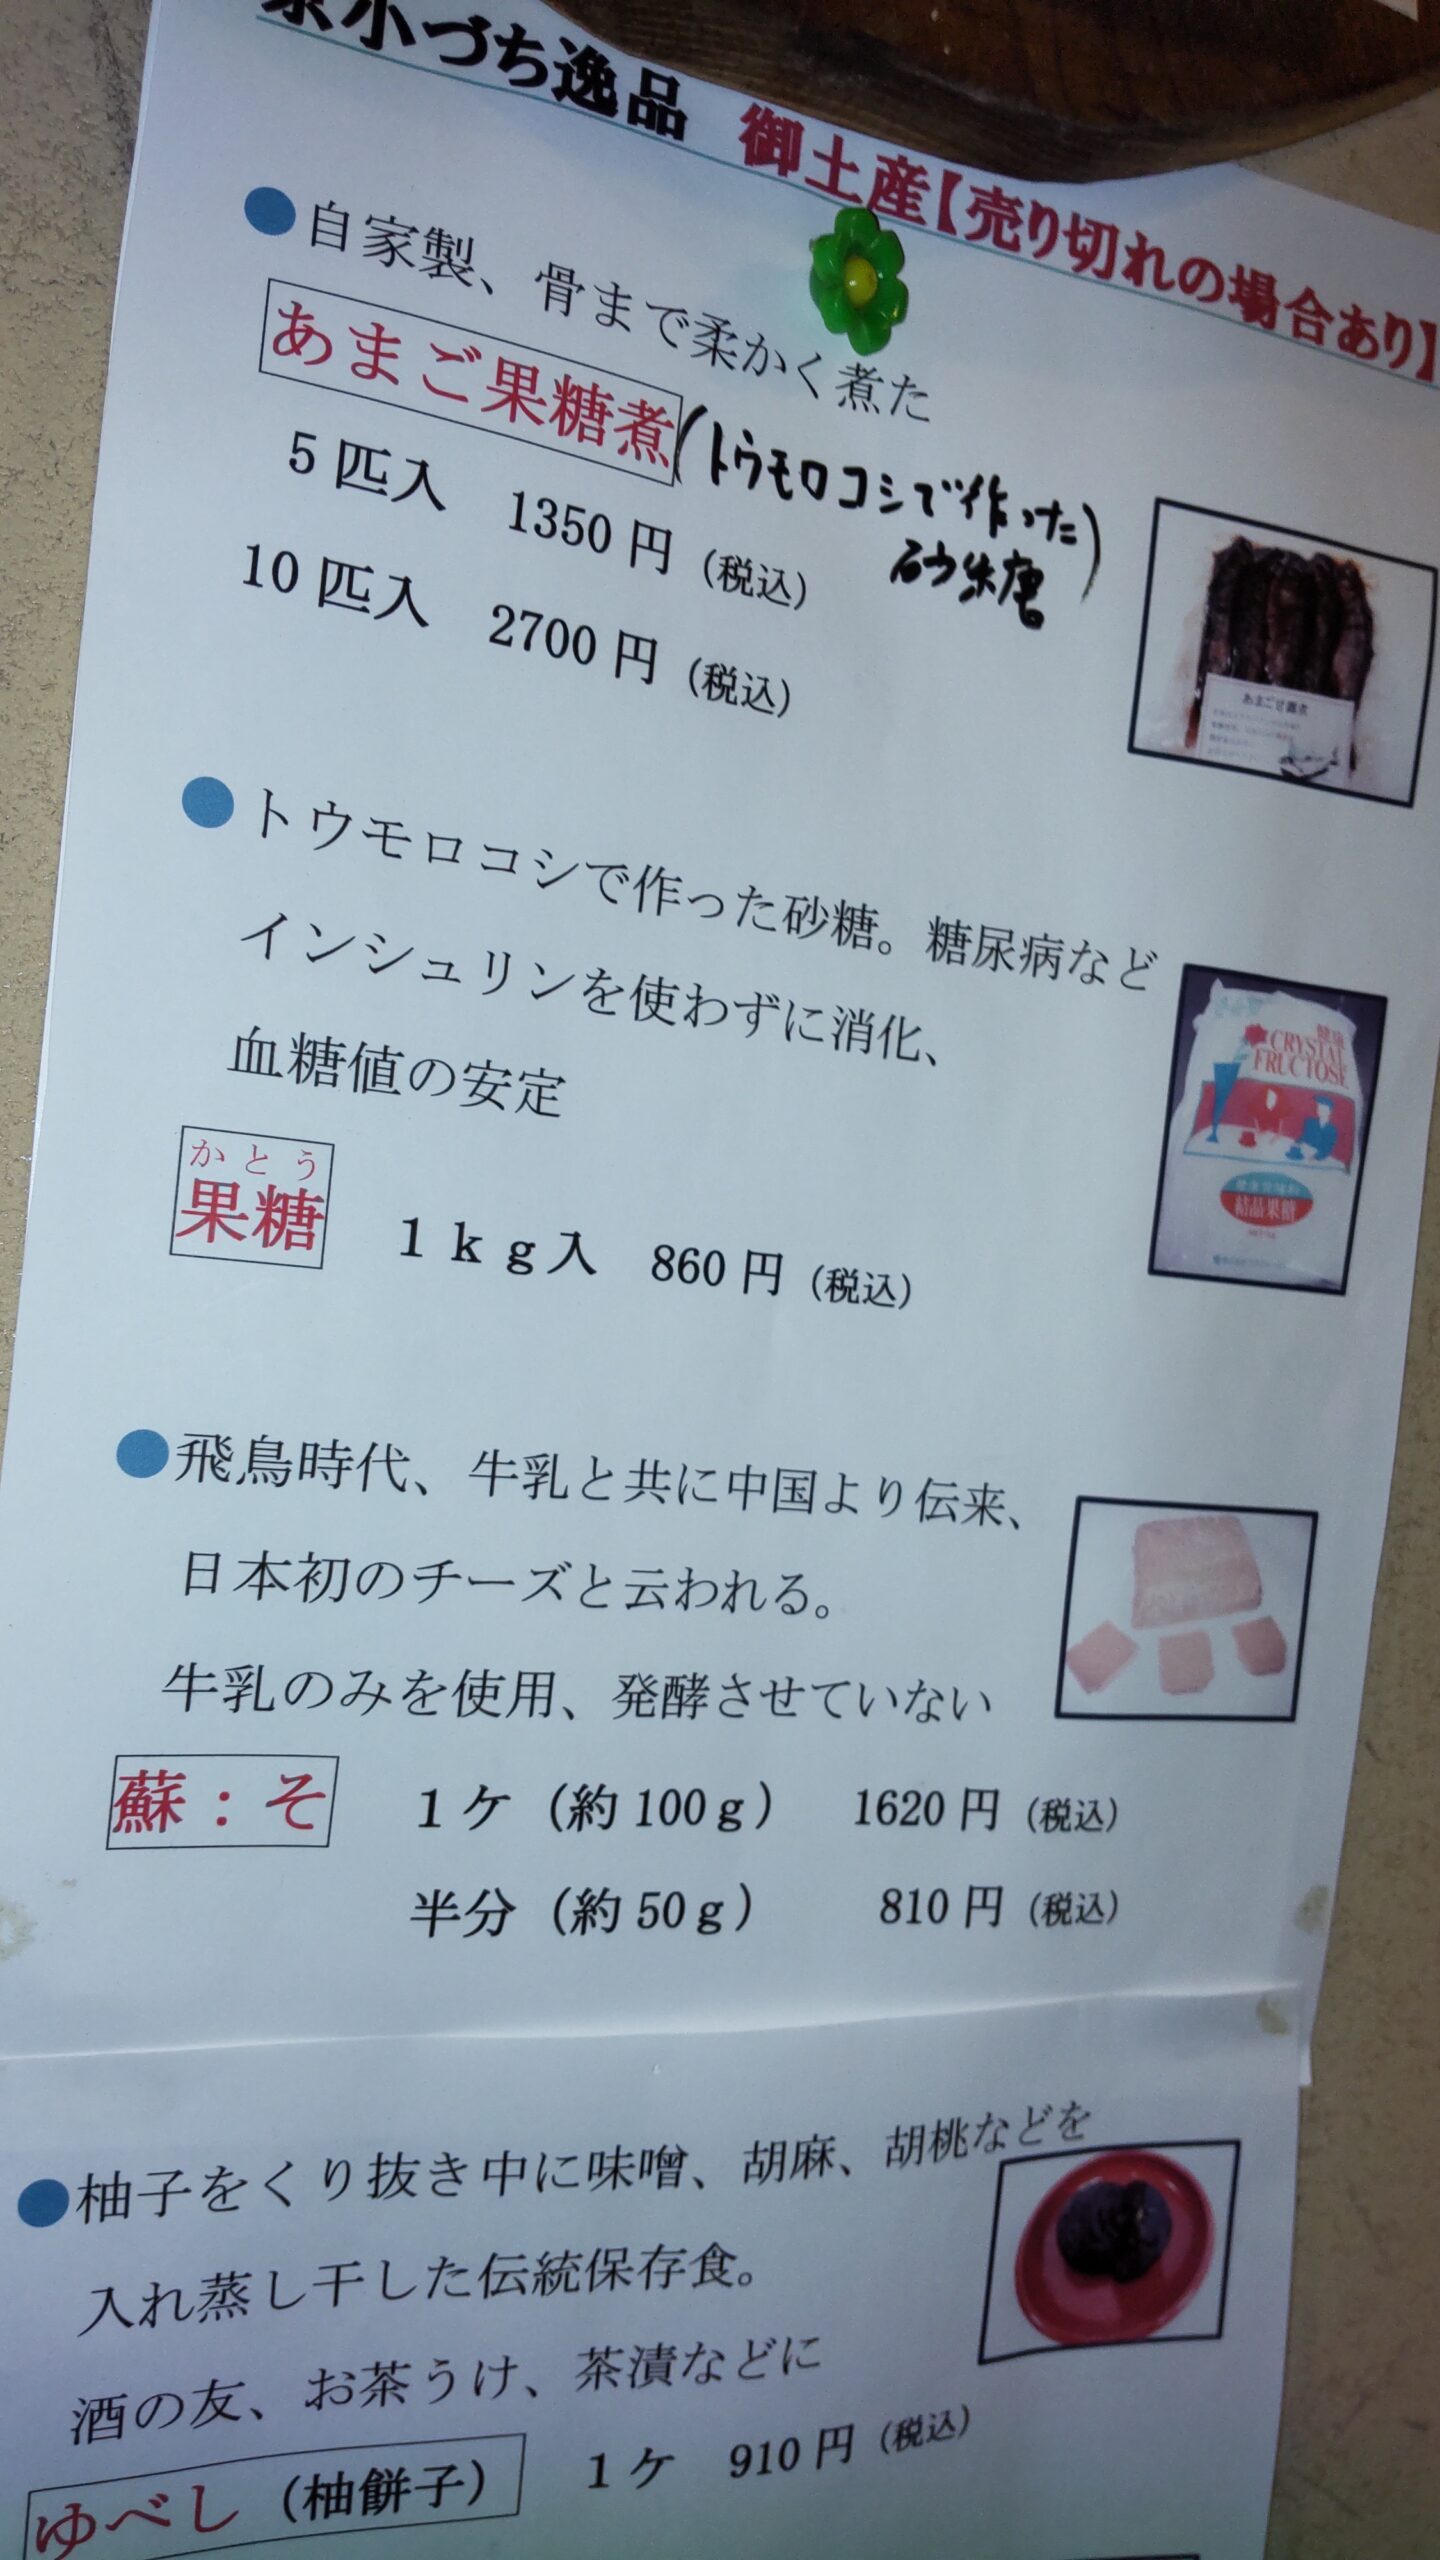 小づち逸品 御土産【売り切れの場合あり】
●自家製、骨まで柔かく煮た
あまご果糖煮(トウモロコシで作った
砂糖)
5匹入 1350円(税込)
10匹入 2700円(税込)
●トウモロコシで作った砂糖。糖尿病など
インシュリンを使わずに消化、
血糖値の安定
かとう
果糖 1kg入 860円(税込)
健康
CRYSTAL
FRUCTOSE
結晶果糖
●飛鳥時代、牛乳と共に中国より伝来、
日本初のチーズと云われる。
牛乳のみを使用、発酵させていない
蘇:そ 1ケ(約100g) 1620円(税込)
半分(約50g) 810円(税込)
●柚子をくり抜き中に味噌、胡麻、胡桃などを
入れ蒸し干した伝統保存食。
酒の友、お茶うけ、茶漬などに
ゆべし(柚餅子) 1ケ 910円(税込)